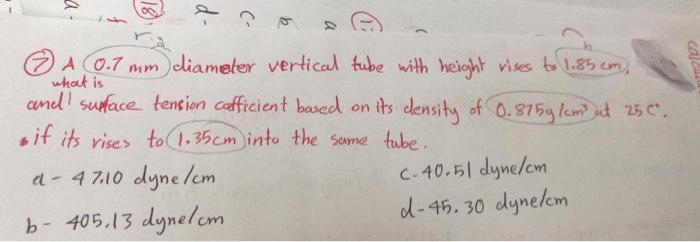 7 A 0.7 mm diameter vertical tube with height rises to 1.85 cm,
what is
and surface tension cofficient based on its density of 0.875g/cm³ at 25 C°.
if its rises to 1.35cm into the same tube.
a- 47.10 dyne/cm
c-40.51 dyne/cm
b- 405.13 dyne/cm
d-45.30 dyne/cm